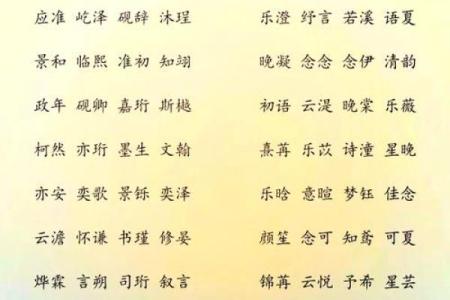 应准 屹泽 砚辞 沐珵 乐澄 纾言 若溪 语夏
景和 临熙 准初 知翊 晚凝 念念 念伊 清韵
政年 砚卿 嘉珩 斯樾 初语 云湜 晚棠 乐薇
柯然 亦珩 墨生 文翰 熹苒 乐苡 诗潼 星晚
亦安 奕歌 景铄 奕泽 乐晗 意暄 梦钰 佳念
云澹 怀谦 书瑾 修晏 颜笙 念可 知鸢 可夏
烨霖 言朔 司珩 叙言 锦苒 云悦 予希 星芸